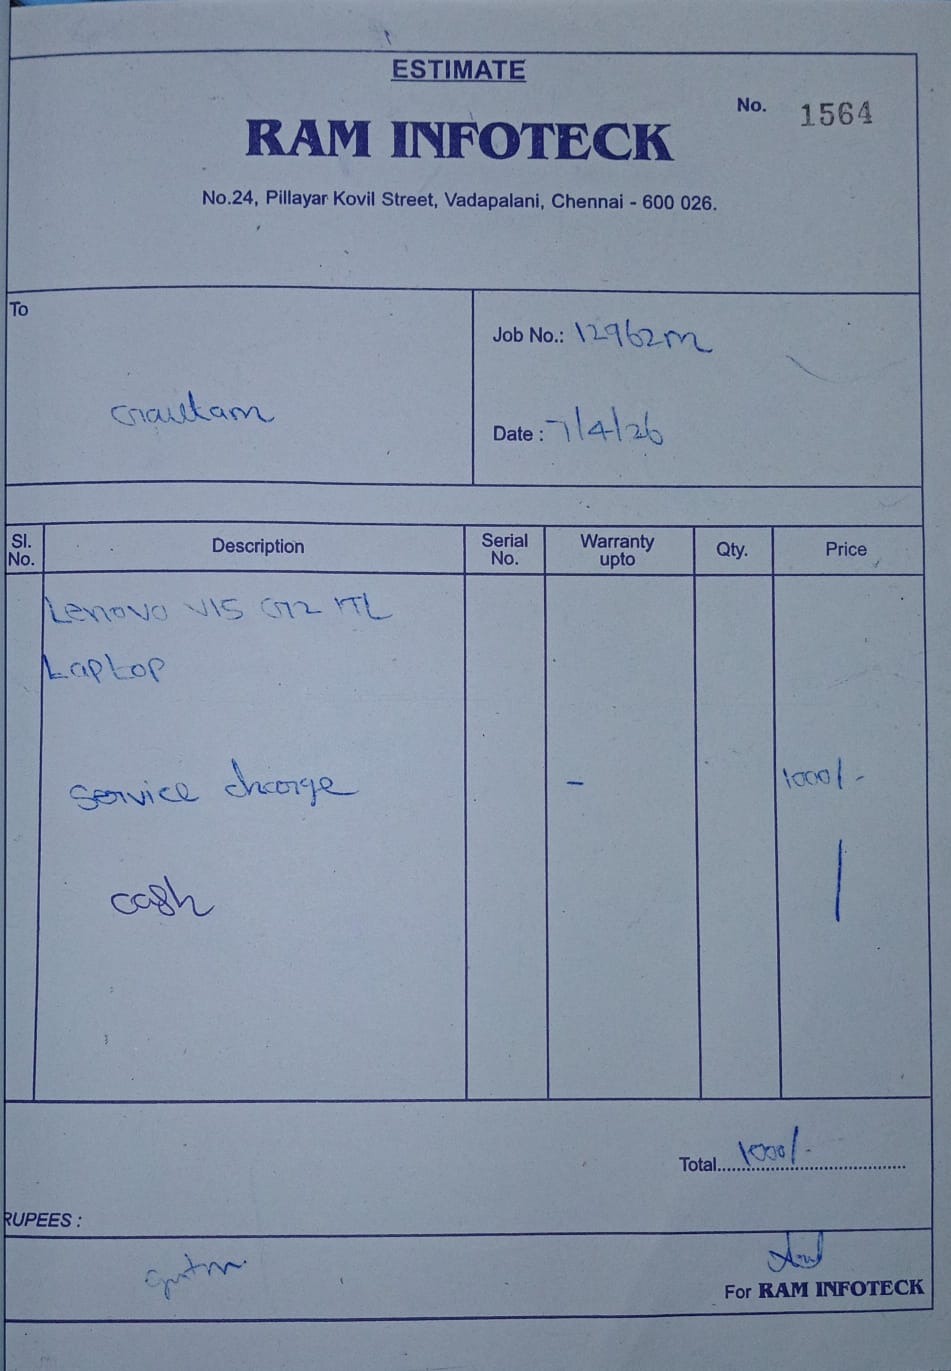 ESTIMATE
No. 1564
RAM INFOTECK
No.24, Pillayar Kovil Street, Vadapalani, Chennai - 600 026.
To
Gautam
Job No.: 12962m
Date : 7/4/26
Sl. No. Description Serial No. Warranty upto Qty. Price
Lenovo V15 G2 ITL
Laptop
Service charge - 1000/-
cash
Total 1000/-
RUPEES :
For RAM INFOTECK